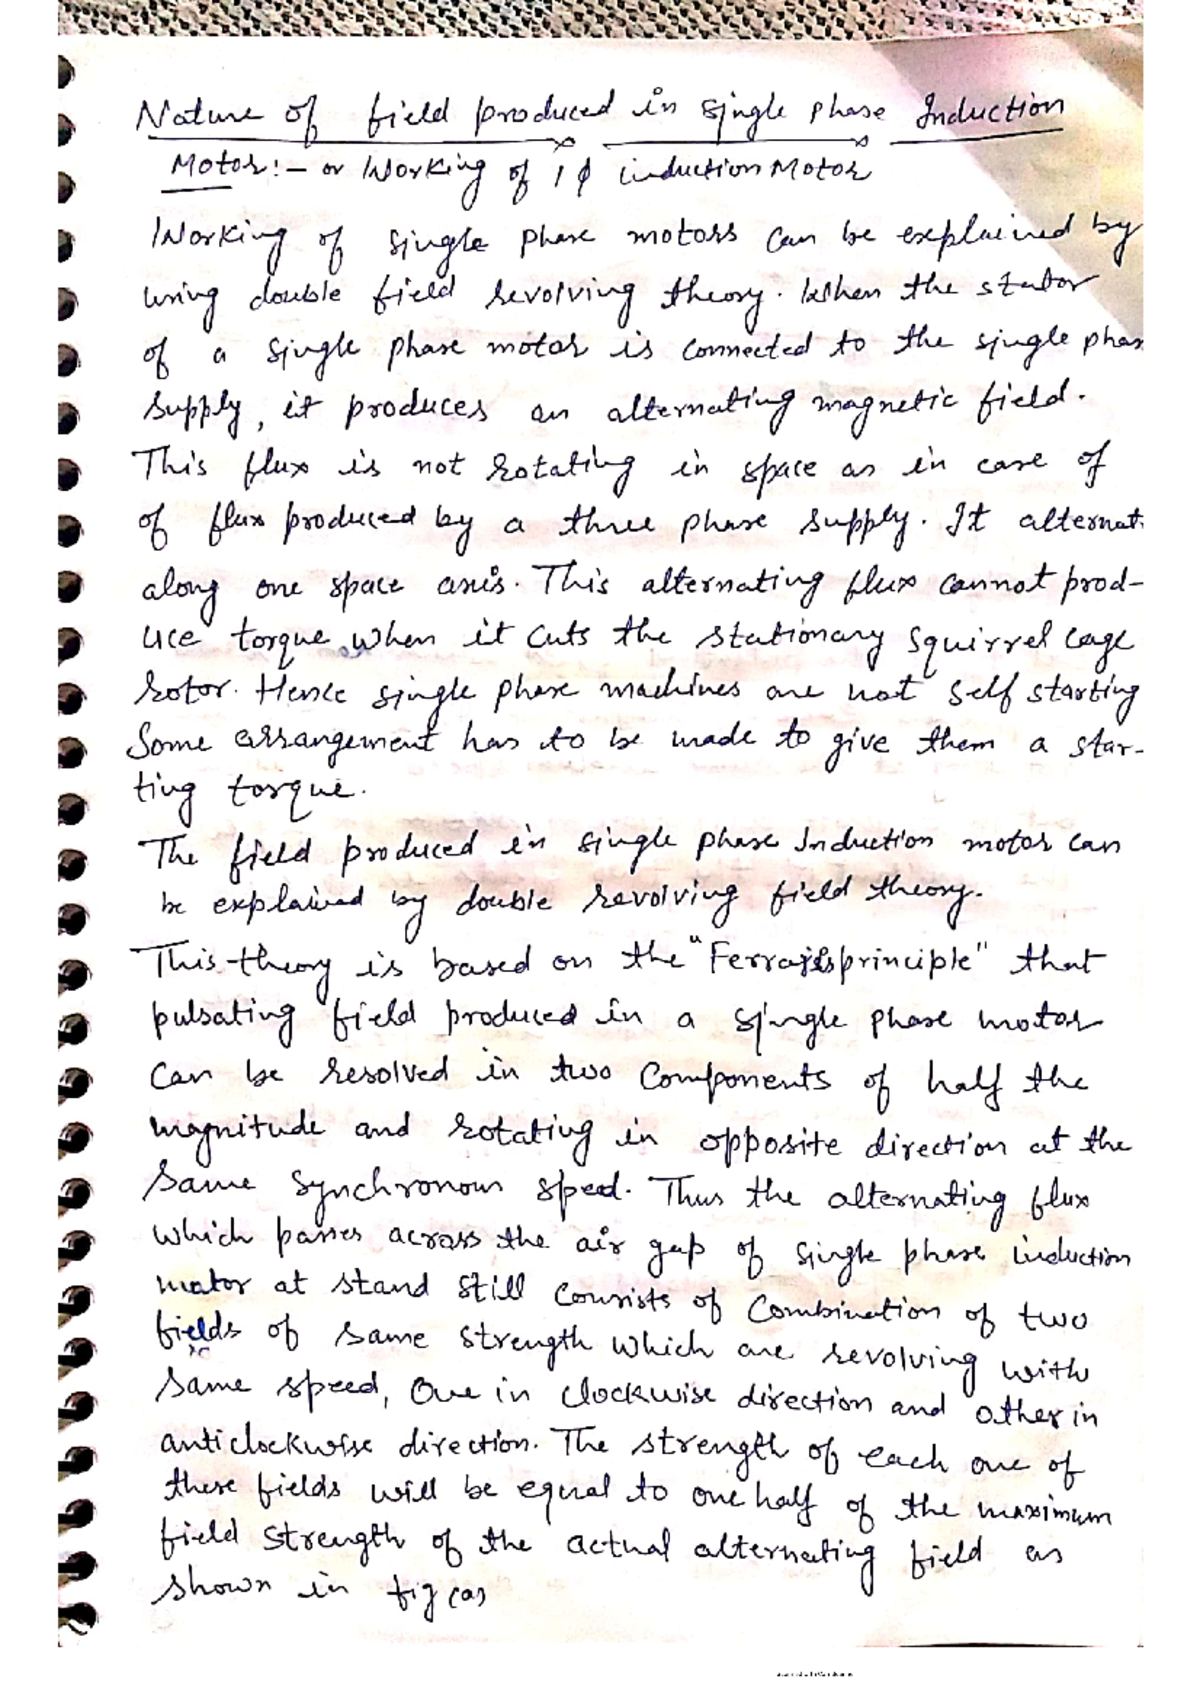 Nature of field produced in single phase Induction
Motor:- or Working of 1 φ induction Motor
Working of single phase motors can be explained by
using double field revolving theory. When the stator
of a single phase motor is connected to the single phas
supply, it produces an alternating magnetic field.
This flux is not rotating in space as in case of
of flux produced by a three phase supply. It alternat
along one space axis. This alternating flux cannot prod-
uce torque when it cuts the stationary squirrel cage
rotor. Hence single phase machines are not self starting
Some arrangement has to be made to give them a star-
ting torque.
The field produced in single phase Induction motor can
be explained by double revolving field theory.
This theory is based on the "Ferraris principle" that
pulsating field produced in a single phase motor
can be resolved in two components of half the
magnitude and rotating in opposite direction at the
same synchronous speed. Thus the alternating flux
which passes across the air gap of single phase induction
motor at stand still consists of combination of two
fields of same strength which are revolving with
same speed, one in clockwise direction and other in
anticlockwise direction. The strength of each one of
these fields will be equal to one half of the maximum
field strength of the actual alternating field as
shown in fig (a)